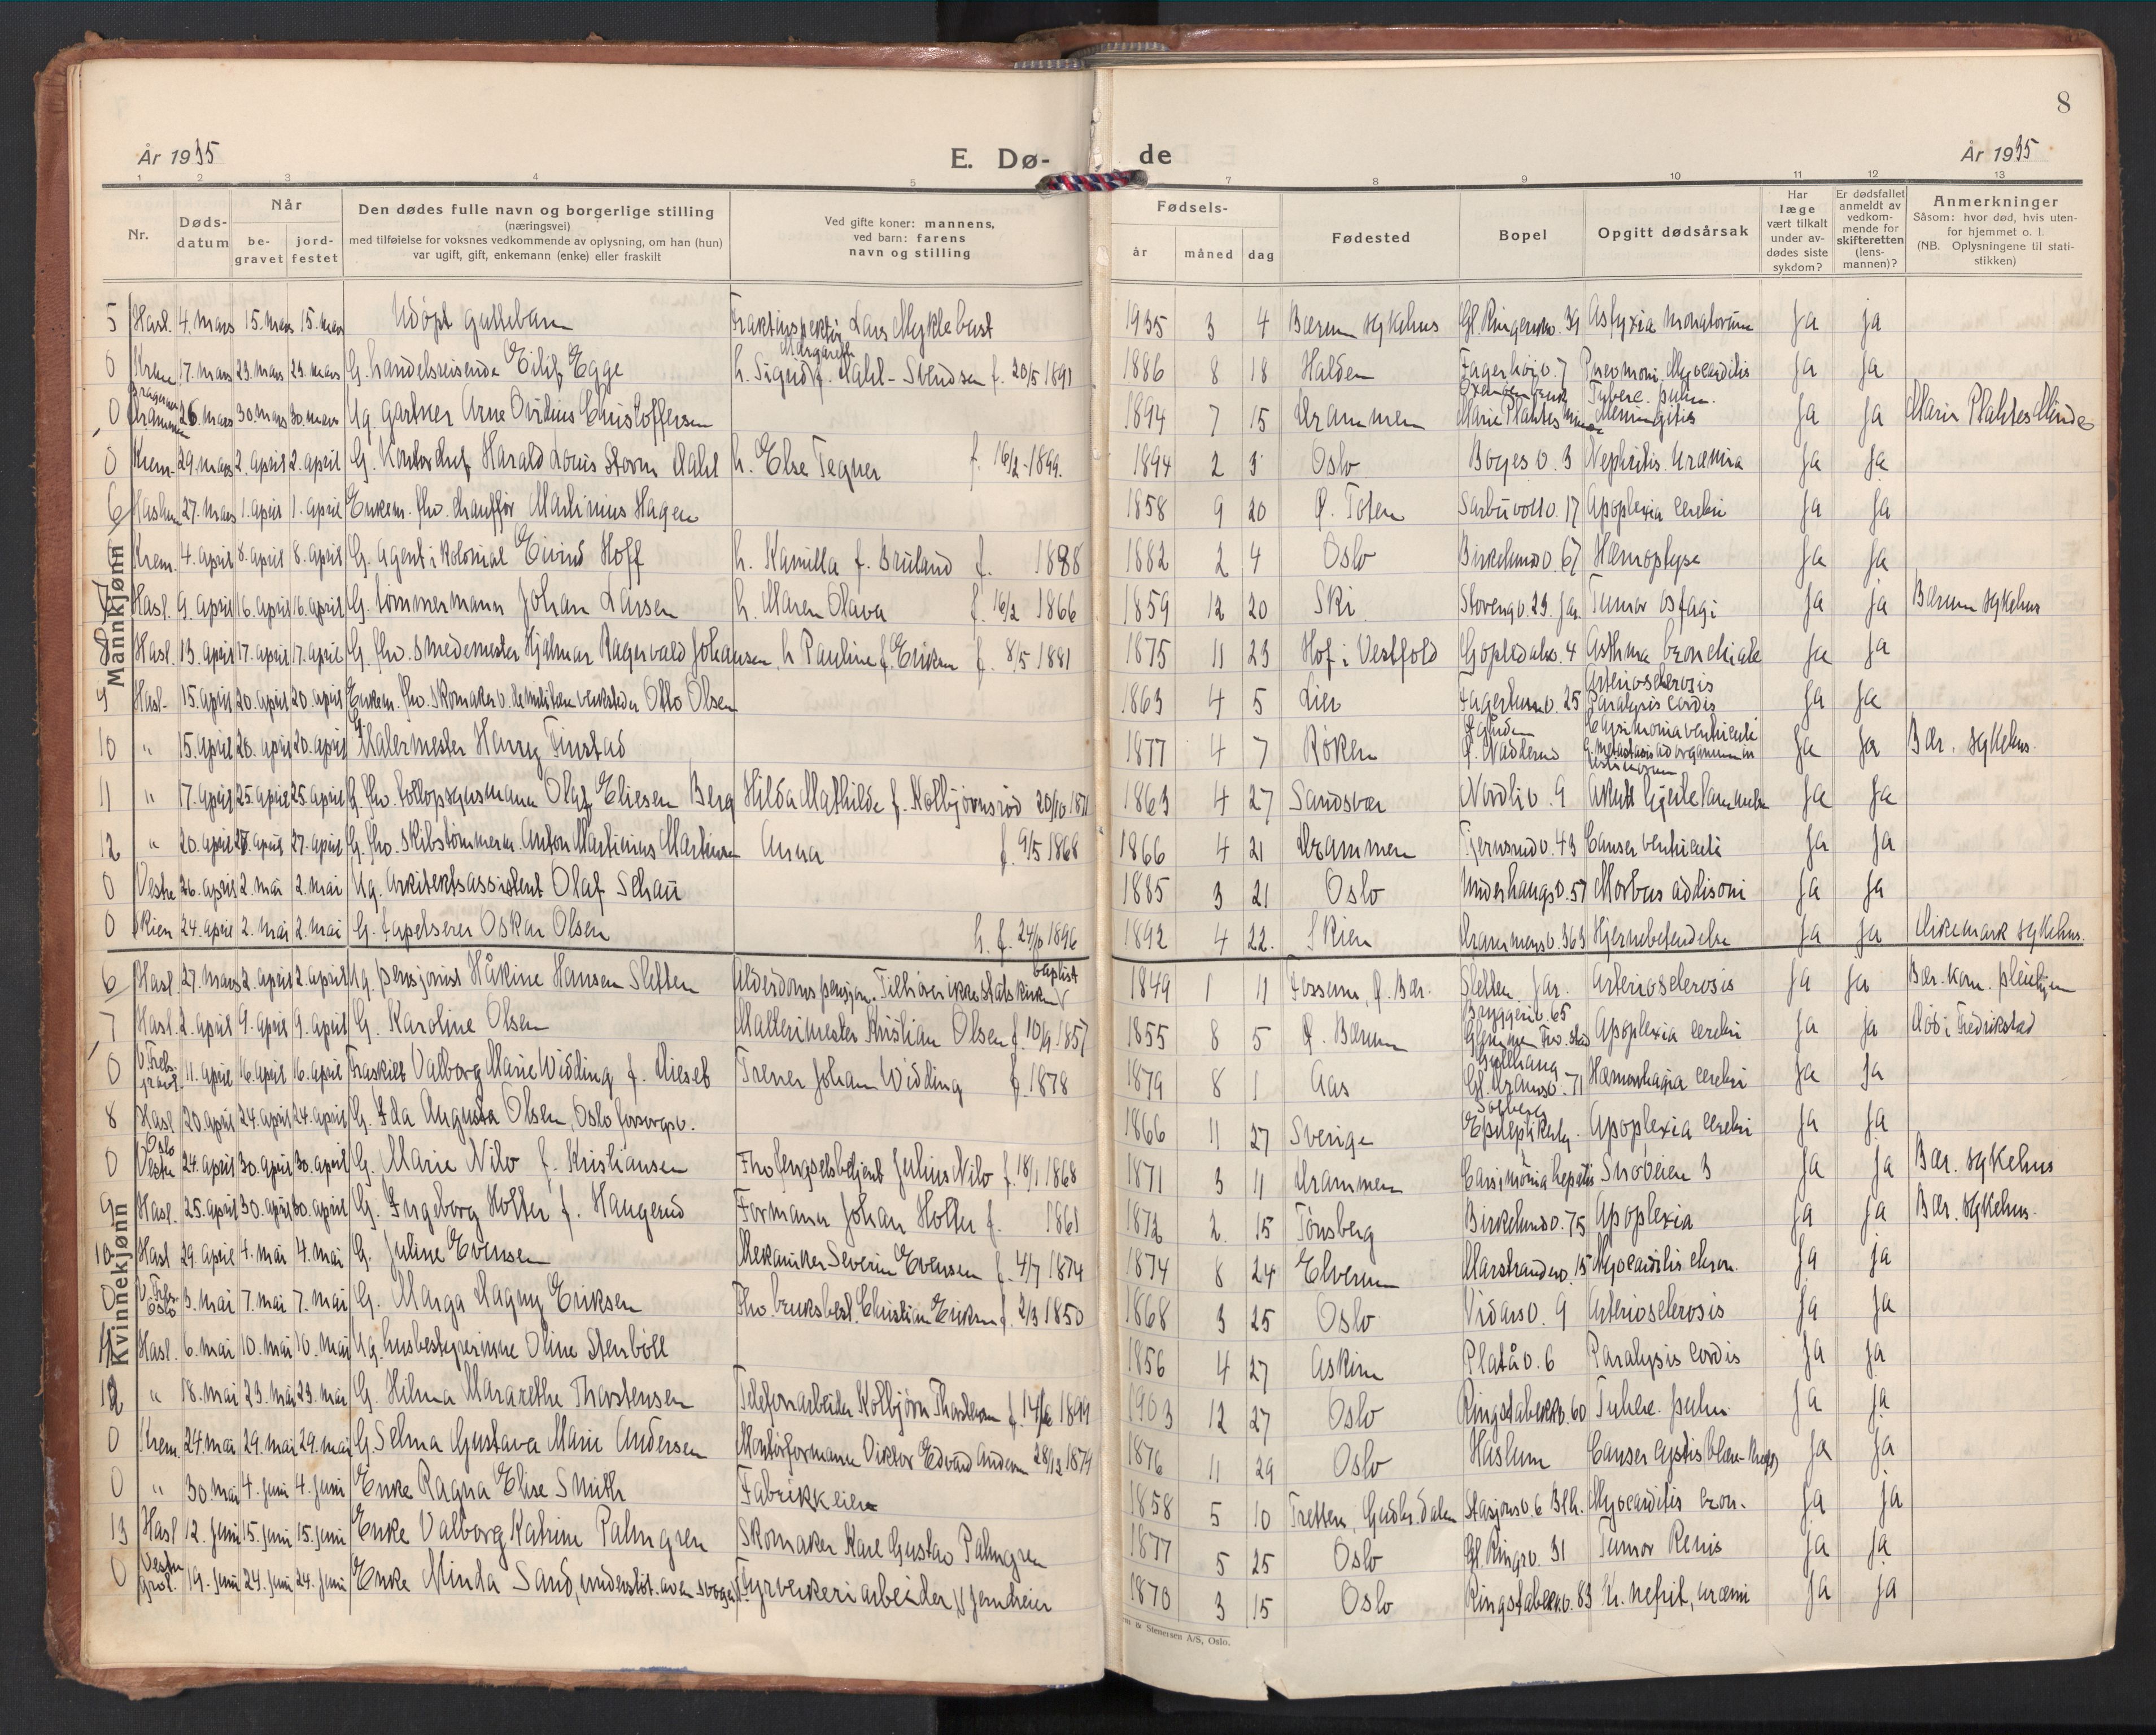 8
År 1935 E. Dø- de År 1935
1 2 3 4 5 7 8 9 10 11 12 13
Nr.
Døds-
datum
Når
be-
gravet
jord-
festet
Den dødes fulle navn og borgerlige stilling
(næringsvei)
med tilføielse for voksnes vedkommende av oplysning, om han (hun)
var ugift, gift, enkemann (enke) eller fraskilt
Ved gifte koner: mannens,
ved barn: farens
navn og stilling
Fødsels-
år måned dag
Fødested
Bopel
Opgitt dødsårsak
Har
læge
vært tilkalt
under av-
dødes siste
sykdom?
Er dødsfallet
anmeldt av
vedkom-
mende for
skifteretten
(lens-
mannen)?
Anmerkninger
Såsom: hvor død, hvis uten-
for hjemmet o. l.
(NB. Oplysningene til stati-
stikken)
Mannkjønn
5 Hasl. 4. mars 15. mars 15. mars Udøpt guttebarn Lars Myklebust 1935 3 4 Bærum sykehus Gl. Ringeriksv. 39 Ja ja
0 Krem 17. mars 23. mars 23. mars G. handelsreisende Eilif Egge h. Sigrid Margareth f. Dahl-Svendsen f. 20/5 1891 1886 8 18 Halden Fagerhøiv. 7 Pneumoni. Myocarditis Ja Ja
0 Bragernes Drammen 26. mars 30. mars 30. mars Ug. gartner Arne Ovidius Christoffersen 1894 7 15 Drammen Marie Plahtes Minde Tuberc. pulm. Meningitis Ja Ja Marie Plahtes Minde
0 Krem. 29. mars 2. april 2. april G. Kontorchef Harald Louis Storm Dahl h. Else Tegner f. 16/2-1899. 1894 2 3 Oslo Boyesv. 3 Nephritis. Uræmia Ja Ja
6 Haslum 27. mars 1. april 1. april Enkem. fhv. chauffør Martinius Hagen 1858 9 20 Ø. Toten Sarbuvollv. 17 Apoplexia cerebri Ja Ja
0 Krem. 4. april 8. april 8. april G. agent i kolonial Eivind Hoff h. Kamilla f. Bruland f. 1888 1882 2 4 Oslo Birkelundv. 67 Hæmoptyse Ja Ja
7 Hasl. 9. april 16. april 16. april G. tømmermann Johan Larsen h. Maren Olava f. 16/2 1866 1859 12 20 Ski Stovengv. 29. Jar. Tumor osfagi Ja ja Bærum sykehus
8 Hasl. 13. april 17. april 17. april G. fhv. smedemester Hjalmar Ragnvald Johansen, h Pauline f. Eriksen f. 8/5 1881 1875 11 23 Hof i Vestfold Gopledalv. 4 Asthma bronchiale Ja Ja
9 Hasl. 15. april 20. april 20. april Enkem. fhv. skomaker v. de militære verksteder Otto Olsen 1863 4 5 Lier Fagertunv. 25 Arteriosclerosis Paralysis cordis Ja Ja
10 " 15. april 20. april 20. april G. Malermester Harry Finstad 1877 4 7 Røken Ø. Nadderud Ja Ja Bær. sykehus.
11 " 17. april 25. april 25. april G. fhv. tollopsynsmann Olaf Eliesen Berg Hilda Mathilde f. Kolbjørnsrød 20/10 1871 1863 4 27 Sandsvær Nordliv. 9 Akutt hjertelammelse Ja Ja
12 " 20. april 27. april 27. april G. fhv. skibstømmerm. Anton Martinius Martinsen Anna f. 9/5 1868 1866 4 21 Drammen Tjernsrudv. 43 Canser ventriculi Ja Ja
0 Vestre 26. april 2. mai 2. mai Ug. Arkitektassistent Olaf Schau 1885 3 21 Oslo Underhaugsv. 57 Morbus addisoni Ja Ja
0 Skien 24. april 2. mai 2. mai G. tapetserer Oskar Olsen h. f. 24/10 1896 1892 4 22. Skien Drammensv. 363 Hjernebetendelse Ja Ja Dikemark sykehus.
Kvinnekjønn
6 Hasl. 27. mars 2. april 2. april Ug. pensjonist Håkine Hansen Sletten Alderdomspensjon. Tilhører ikke statskirken baptist 1849 1 11 Jossum, Ø. Bær. Sletten Jar. Arteriosclerosis Ja Ja Bær. kom. pleiehjem
7 Hasl. 2. april 9. april 9. april G. Karoline Olsen Malermester Kristian Olsen f. 10/9 1857 1855 8 5 Ø. Bærum Bryggeriv. 65 Glemmen Fr. stad Apoplexia cerebri Ja ja Død i Fredrikstad
0 V. Frels. gravl. 11. april 16. april 16. april Fraskilt Valborg Marie Widding f. Dieseth Trener Johan Widding f. 1878 1879 8 1 Aas Gl. Dramsv. 71 Hæmorrhagia cerebri Ja Ja
8 Hasl 20. april 24. april 24. april G. Ida Augusta Olsen, Oslo forsorgsv. 1866 11 27 Sverige Solberg Epileptikerhj. Apoplexia cerebri Ja Ja
0 Oslo Vestre 24. april 30. april 30. april G. Marie Nilo f. Kristiansen Fhv. fengselsbetjent Julius Nilo f. 18/1 1868 1871 3 11 Drammen Carsinomia hepatis Snøveien 3 Ja Ja Bær. sykehus
9 Hasl. 25. april 30. april 30. april G. Ingeborg Holter f. Haugerud Formann Johan Holter f. 1861 1872 2. 15 Tønsberg Birkelundv. 75 Apoplexia Ja Ja Bær. sykehus.
10 Hasl 29. april 4. mai 4. mai G. Juline Evensen Mekaniker Severin Evensen f. 4/7 1874 1874 8 24 Elverum Marstranderv. 15 Myocarditis chron. Ja ja
0 V. Frs. Oslo 3. mai 7. mai 7. mai G. Marga Dagny Eriksen Fhv. bruksbest. Christian Eriksen f. 2/3 1850 1868 3 25 Oslo Vidarsv. 9 Arteriosclerosis Ja Ja
11 Hasl. 6. mai 10. mai 10. mai Ug. husbestyrerinne Oline Stenbøll 1856 4 27 Askim Platåv. 6 Paralysis cordis Ja Ja
12 " 18. mai 23. mai 23. mai G. Hilma Mararethe Thorstensen Telefonarbeider Kolbjørn Thorstensen f. 1899 1903 12 27 Oslo Ringstabekkv. 60 Tuberc. pulm. Ja Ja
0 Krem. 24. mai 29. mai 29. mai G. Selma Gustava Marie Andersen Montørformann Viktor Edvard Andersen 28/12 1874 1876 11 29 Oslo Haslum Canser cystis Ja Ja
0 " 30. mai 4. juni 4. juni Enke Ragna Elise Smith Fabrikkeier 1858 5 10 Tretten, Gudbr. dalen Stasjonsv. 6 Blh. Myocarditis cron. Ja Ja
13 Hasl 12. juni 15. juni 15. juni Enke Valborg Katrine Palmgren Skomaker Karl Gustav Palmgren 1877 5 25 Oslo Gl. Ringv. 31 Tumor Renis Ja Ja
0 Vestre grol. 19. juni 24. juni 24. juni Enke Minda Sand, understøt. av en svoger Fyrverkeriarbeider 1870 3 15 Oslo Ringstabekkv. 83 Kr. nefrit, uræmi Ja Ja
& Stenersen A/S, Oslo.